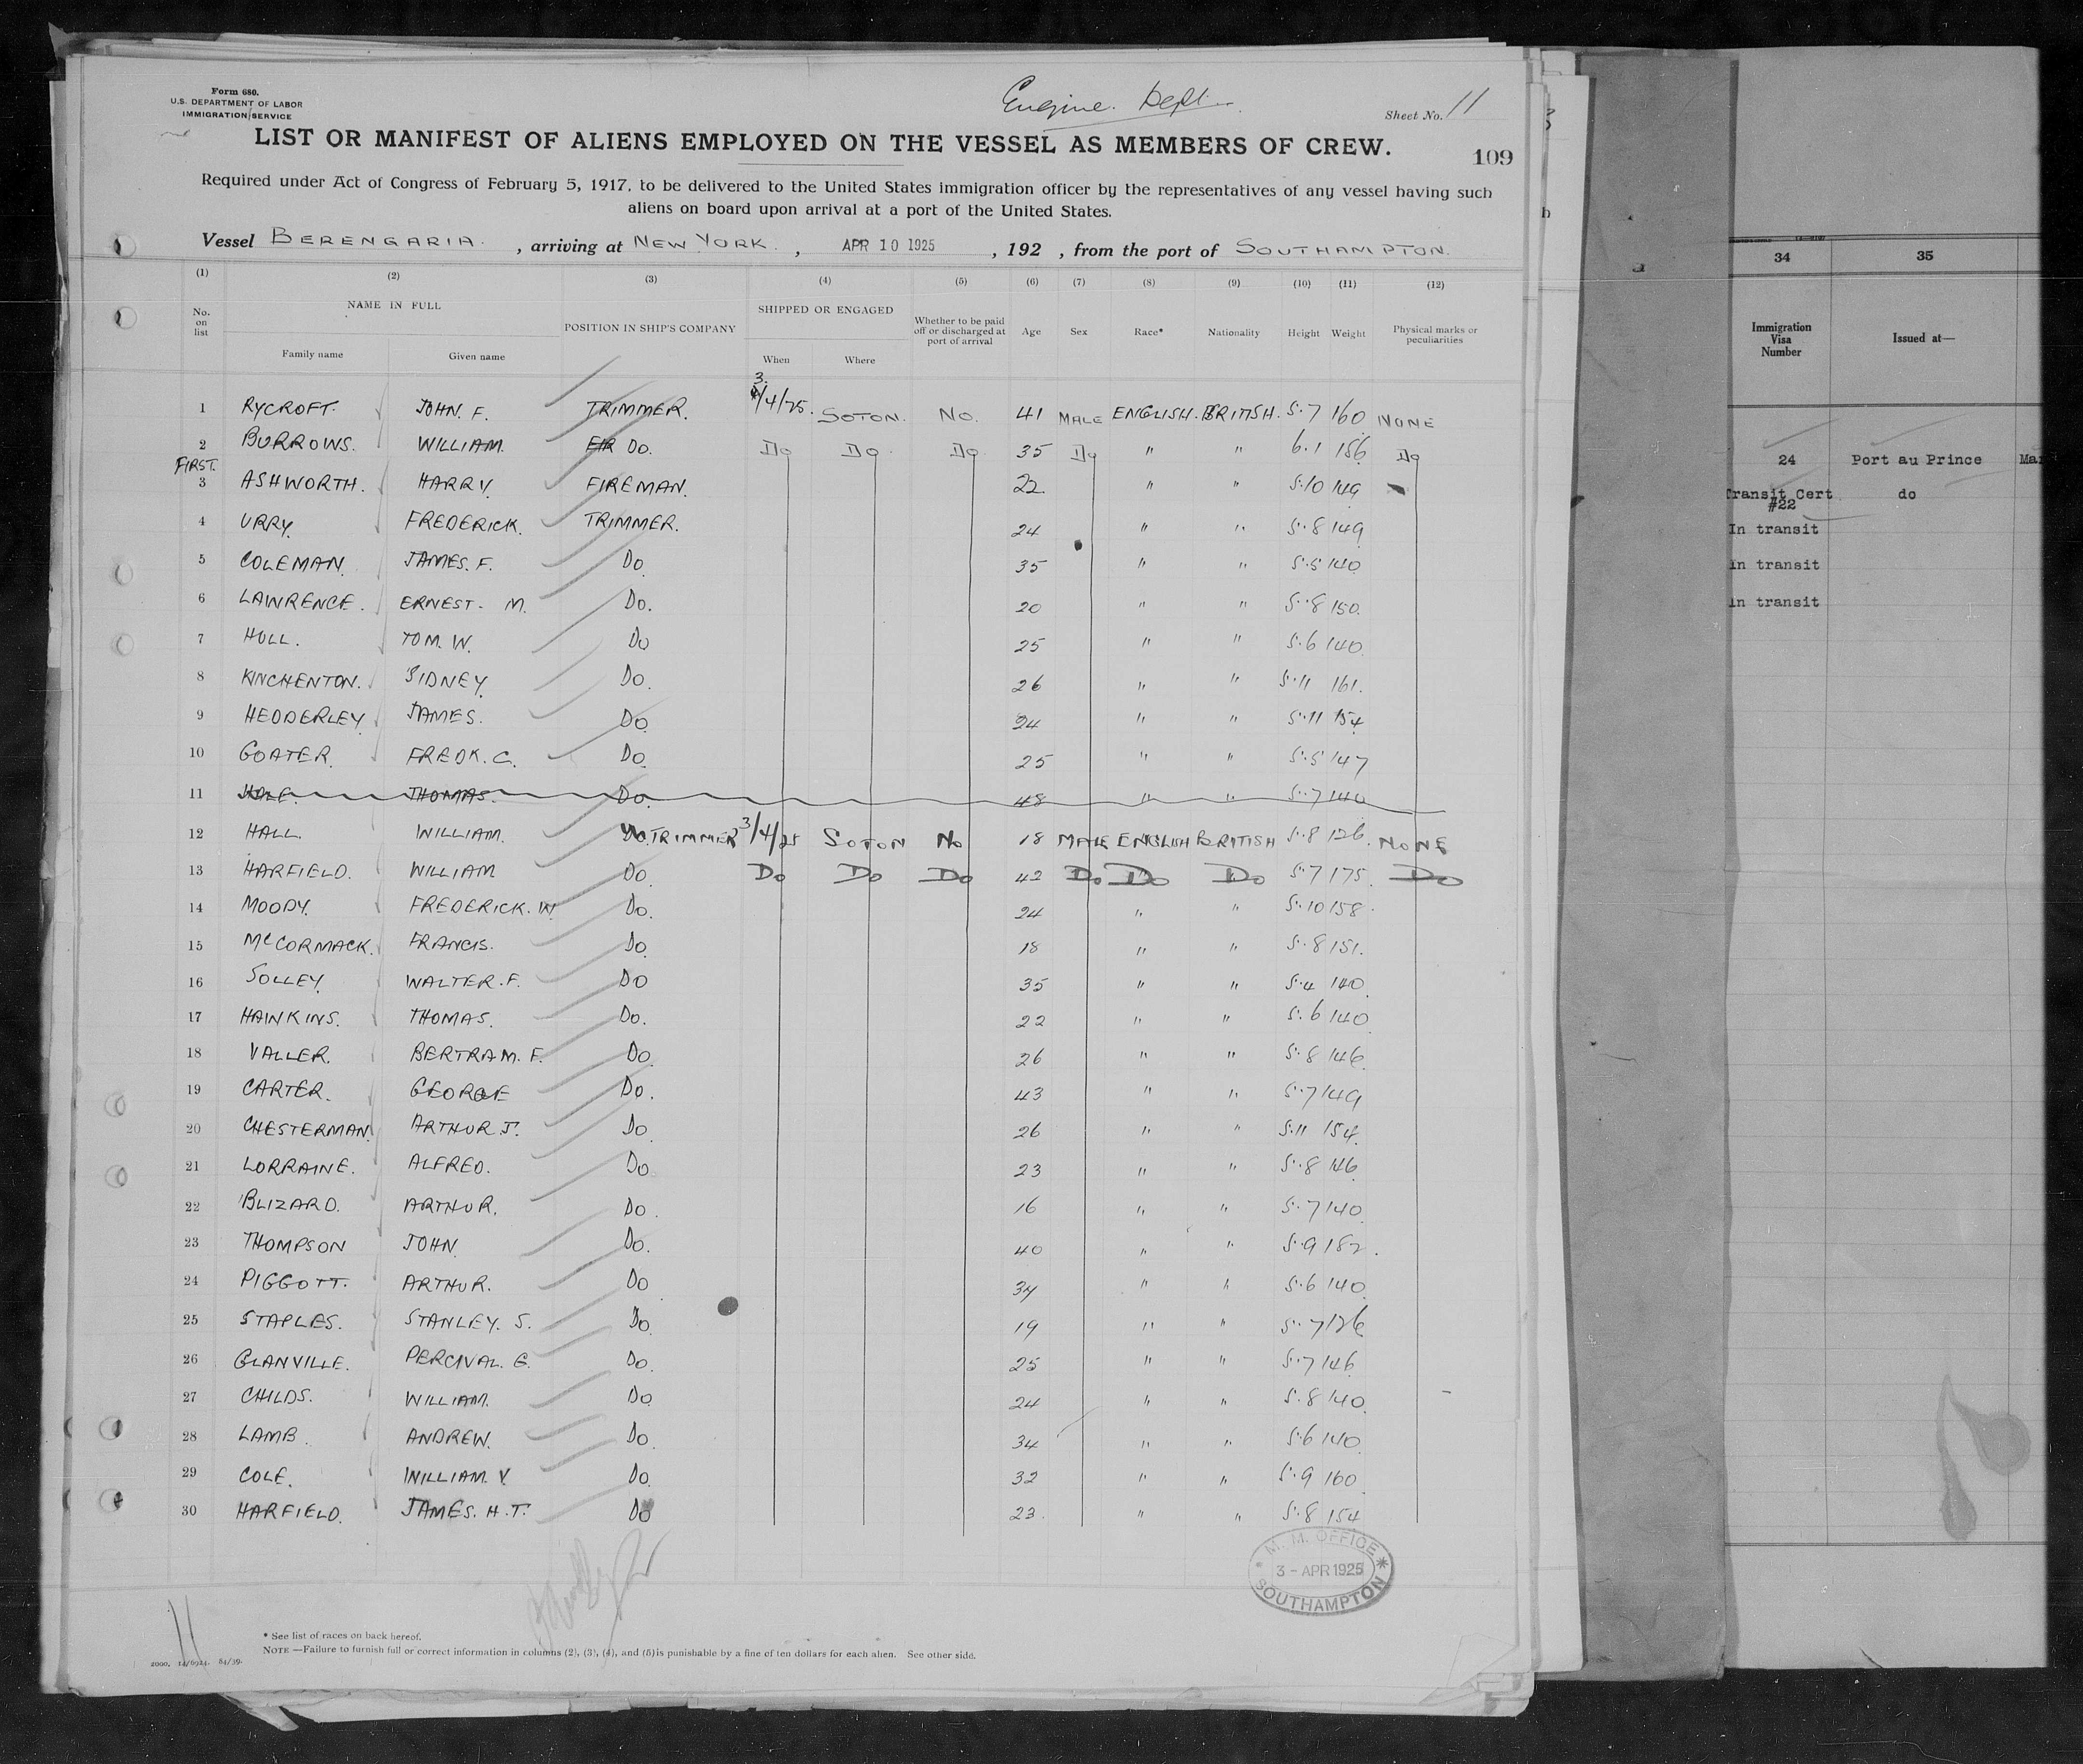 Form 680.
U.S. DEPARTMENT OF LABOR
IMMIGRATION SERVICE
Engine. Dept.
Sheet No. 11
LIST OR MANIFEST OF ALIENS EMPLOYED ON THE VESSEL AS MEMBERS OF CREW.
109
Required under Act of Congress of February 5, 1917, to be delivered to the United States immigration officer by the representatives of any vessel having such
aliens on board upon arrival at a port of the United States.
Vessel BERENGARIA. , arriving at NEW YORK. , APR 10 1925 , 192 , from the port of SOUTHAMPTON.
(1) (2) (3) (4) (5) (6) (7) (8) (9) (10) (11) (12)
No. on list NAME IN FULL POSITION IN SHIP'S COMPANY SHIPPED OR ENGAGED Whether to be paid off or discharged at port of arrival Age Sex Race* Nationality Height Weight Physical marks or peculiarities
Family name Given name When Where
1 RYCROFT. JOHN. F. TRIMMER. 3/4/25. SOTON. NO. 41 MALE ENGLISH. BRITISH. 5.7 160 NONE
2 BURROWS. WILLIAM. Do. Do Do Do 35 Do " " 6.1 186 Do
FIRST.
3 ASHWORTH. HARRY. FIREMAN. 22. " " 5.10 149
4 URRY. FREDERICK. TRIMMER. 24 " " 5.8 149
5 COLEMAN. JAMES. F. Do 35 " " 5.5 140
6 LAWRENCE. ERNEST. M. Do. 20 " " 5.8 150.
7 HULL. TOM. W. Do 25 " " 5.6 140
8 KINCHENTON. SIDNEY. Do. 26 " " 5.11 161.
9 HEDDERLEY. JAMES. Do 24 " " 5.11 154
10 GOATER. FREDK. C. Do. 25 " " 5.5 147
11 THOMAS. Do. 48 " " 5.7 140
12 HALL. WILLIAM. Do. TRIMMER 3/4/25 SOTON No 18 MALE ENGLISH BRITISH 5.8 126. NONE
13 HARFIELD. WILLIAM Do. Do Do Do 42 Do Do Do 5.7 175. Do
14 MOODY. FREDERICK. W. Do. 24 " " 5.10 158.
15 McCORMACK. FRANCIS. Do. 18 " " 5.8 151.
16 SOLLEY. WALTER. F. Do 35 " " 5.4 140
17 HAWKINS. THOMAS. Do. 22 " " 5.6 140
18 VALLER. BERTRAM. F. Do 26 " " 5.8 146
19 CARTER. GEORGE Do. 43 " " 5.7 149
20 CHESTERMAN. ARTHUR J. Do. 26 " " 5.11 154.
21 LORRAINE. ALFRED. Do 23 " " 5.8 146
22 BLIZARD. ARTHUR. Do. 16 " " 5.7 140
23 THOMPSON JOHN. Do. 40 " " 5.9 182.
24 PIGGOTT. ARTHUR. Do 34 " " 5.6 140
25 STAPLES. STANLEY. S. Do. 19 " " 5.7 126
26 GLANVILLE. PERCIVAL. G. Do. 25 " " 5.7 146
27 CHILDS. WILLIAM. Do. 24 " " 5.8 140
28 LAMB. ANDREW. Do. 34 " " 5.6 140
29 COLE. WILLIAM. V. Do. 32 " " 5.9 160
30 HARFIELD. JAMES. H. T. Do 23. " " 5.8 154
M. M. OFFICE
3 - APR 1925
SOUTHAMPTON
11
* See list of races on back hereof.
NOTE.—Failure to furnish full or correct information in columns (2), (3), (4), and (5) is punishable by a fine of ten dollars for each alien. See other side.
2000. 14/6924. 84/39.
34 35
Immigration Visa Number Issued at—
24 Port au Prince
Transit Cert do
#22
In transit
In transit
In transit